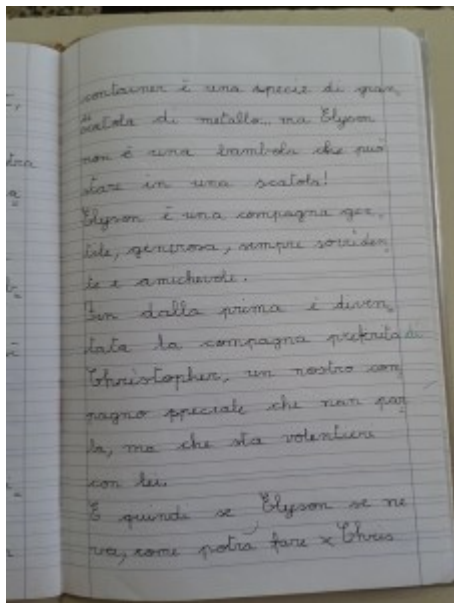 container è una specie di gran
scatola di metallo... ma Elyson
non è una bambola che può
stare in una scatola!
Elyson è una compagna gen_
tile, generosa, sempre sorriden_
te e amichevole.
Fin dalla prima è diven_
tata la compagna preferita di
Christopher, un nostro com_
pagno speciale che non par_
la, ma che sta volentieri
con lei.
E quindi se Elyson se ne
va, come potrà fare x Chris
tra